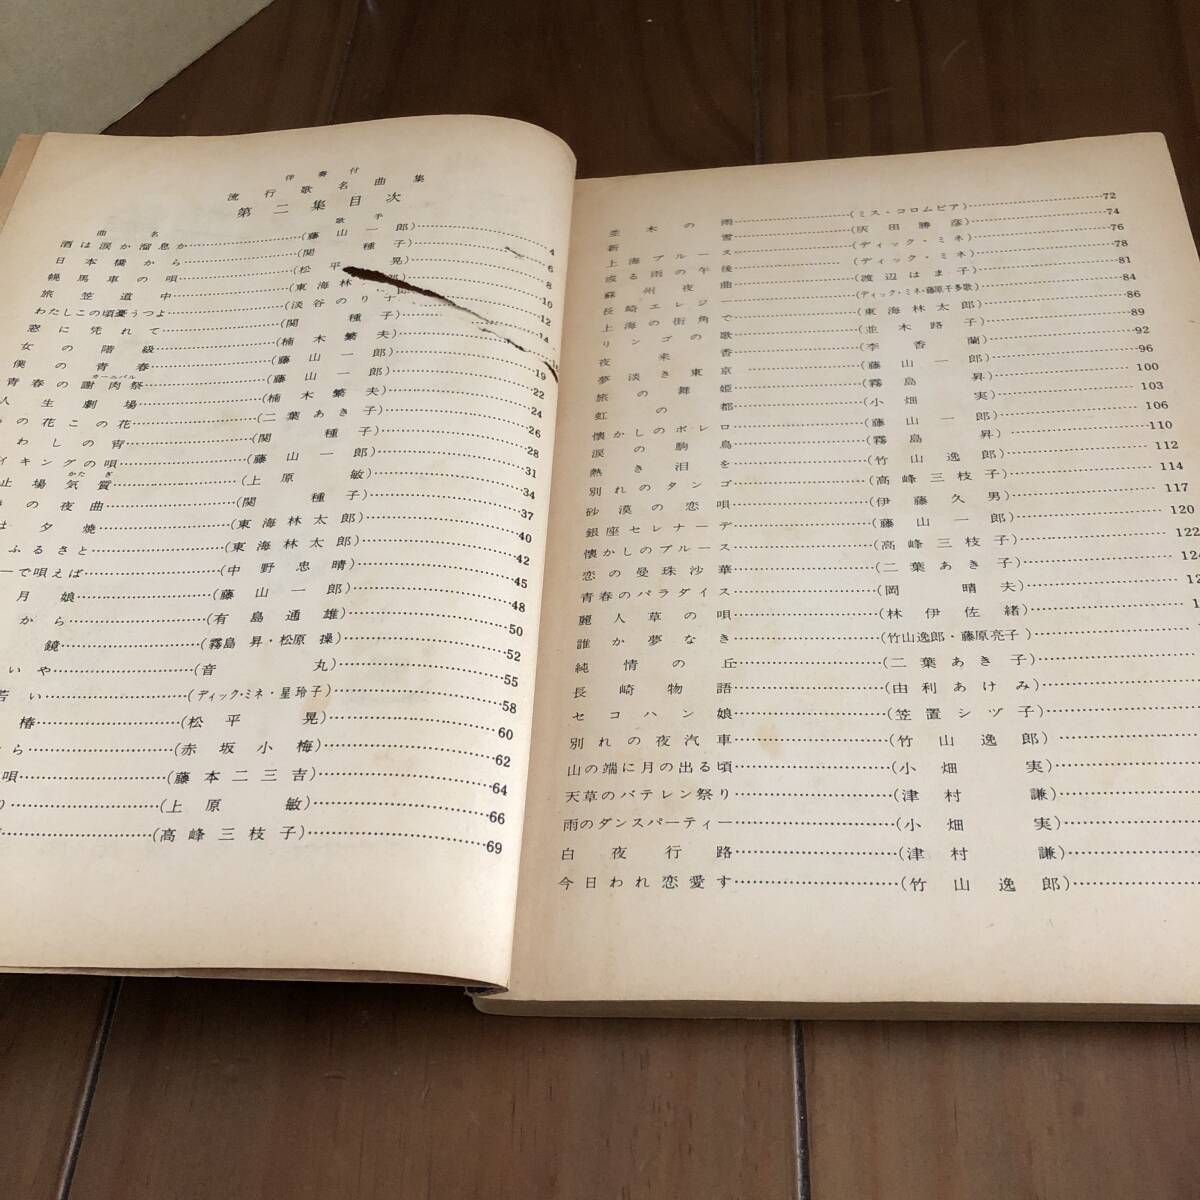 伴奏付
流行歌名曲集
第二集目次
曲名 歌手
酒は涙か溜息か (藤山一郎) 4
日本橋から (関種子) 6
幌馬車の唄 (松平晃) 8
旅笠道中 (東海林 郎) 10
わたしこの頃憂うつよ (淡谷のり子) 12
窓に凭れて (関種子) 14
女の階級 (楠木繁夫)
僕の青春 (藤山一郎) 19
青春の謝肉祭 カーニバル (藤山一郎) 22
人生劇場 (楠木繁夫) 24
の花この花 (二葉あき子) 26
わしの宵 (関種子) 28
イキングの唄 (藤山一郎) 31
止場気質 かたぎ (上原敏) 34
の夜曲 (関種子) 37
夕焼 (東海林太郎) 40
ふるさと (東海林太郎) 42
ーで唄えば (中野忠晴) 45
月娘 (藤山一郎) 48
から (有島通雄) 50
鏡 (霧島昇・松原操) 52
いや (音丸) 55
若い (ディック・ミネ・星玲子) 58
椿 (松平晃) 60
ら (赤坂小梅) 62
唄 (藤本二三吉) 64
り (上原敏) 66
(高峰三枝子) 69
並木の雨 (ミス・コロムビア) 72
新雪 (灰田勝彦) 74
上海ブルース (ディック・ミネ) 76
或る雨の午後 (ディック・ミネ) 78
蘇州夜曲 (渡辺はま子) 81
長崎エレジー (ディック・ミネ・藤原千多歌) 84
上海の街角で (東海林太郎) 86
リンゴの歌 (並木路子) 89
夜来香 (李香蘭) 92
夢淡き東京 (藤山一郎) 96
旅の舞姫 (霧島昇) 100
虹の都 (小畑実) 103
懐かしのボレロ (藤山一郎) 106
涙の駒鳥 (霧島昇) 110
熱き泪を (竹山逸郎) 112
別れのタンゴ (高峰三枝子) 114
砂漠の恋唄 (伊藤久男) 117
銀座セレナーデ (藤山一郎) 120
懐かしのブルース (高峰三枝子) 122
恋の曼珠沙華 (二葉あき子) 124
青春のパラダイス (岡晴夫) 12
麗人草の唄 (林伊佐緒) 1
誰か夢なき (竹山逸郎・藤原亮子)
純情の丘 (二葉あき子)
長崎物語 (由利あけみ)
セコハン娘 (笠置シヅ子)
別れの夜汽車 (竹山逸郎)
山の端に月の出る頃 (小畑実)
天草のバテレン祭り (津村謙)
雨のダンスパーティー (小畑実)
白夜行路 (津村謙)
今日われ恋愛す (竹山逸郎)